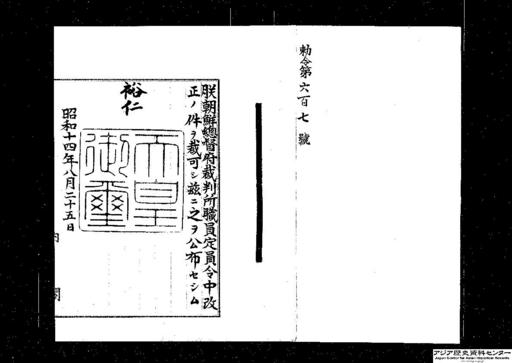 勅令第六百七號
朕朝鮮總督府裁判所職員定員令中改
正ノ件ヲ裁可シ茲ニ之ヲ公布セシム
裕仁
天皇御璽
昭和十四年八月二十五日
内閣
アジア歴史資料センター
Japan Center for Asian Historical Records